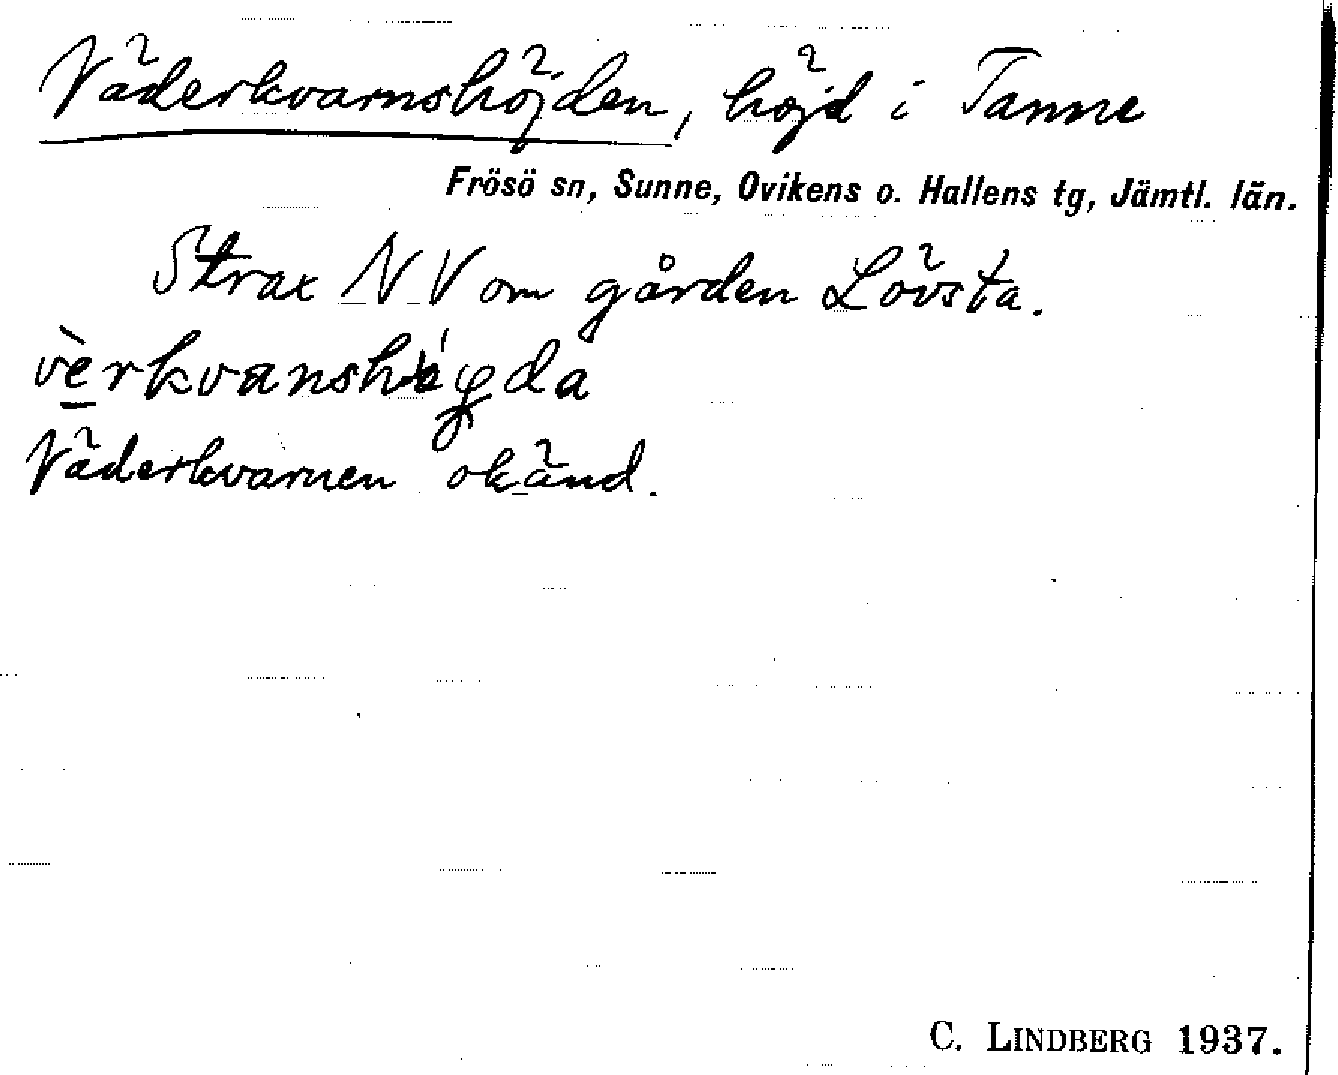 Väderkvarnshöjden, höjd i Tanne
Frösö sn, Sunne, Ovikens o. Hallens tg, Jämtl. län.
Strax NV om gården Lövsta.
Väderkvarnen okänd.
C. LINDBERG 1937.